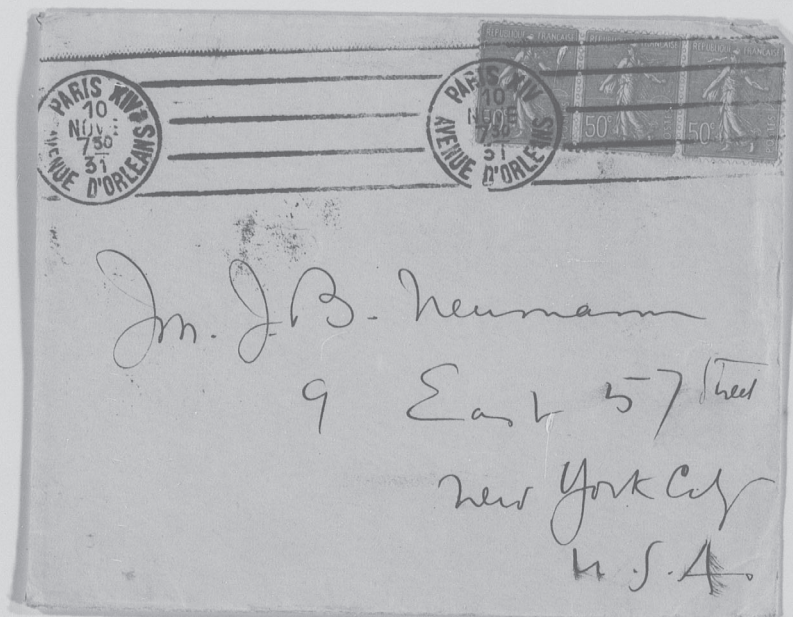 PARIS XIV
10
NOVE
7 30
31
AVENUE D'ORLEANS
PARIS XIV
10
NOVE
7 30
31
AVENUE D'ORLEANS
REPUBLIQUE FRANÇAISE
REPUBLIQUE FRANÇAISE
REPUBLIQUE FRANÇAISE
50c
50c
Mr. J. B. Neumann
9 East 57 Street
New York City
U.S.A.